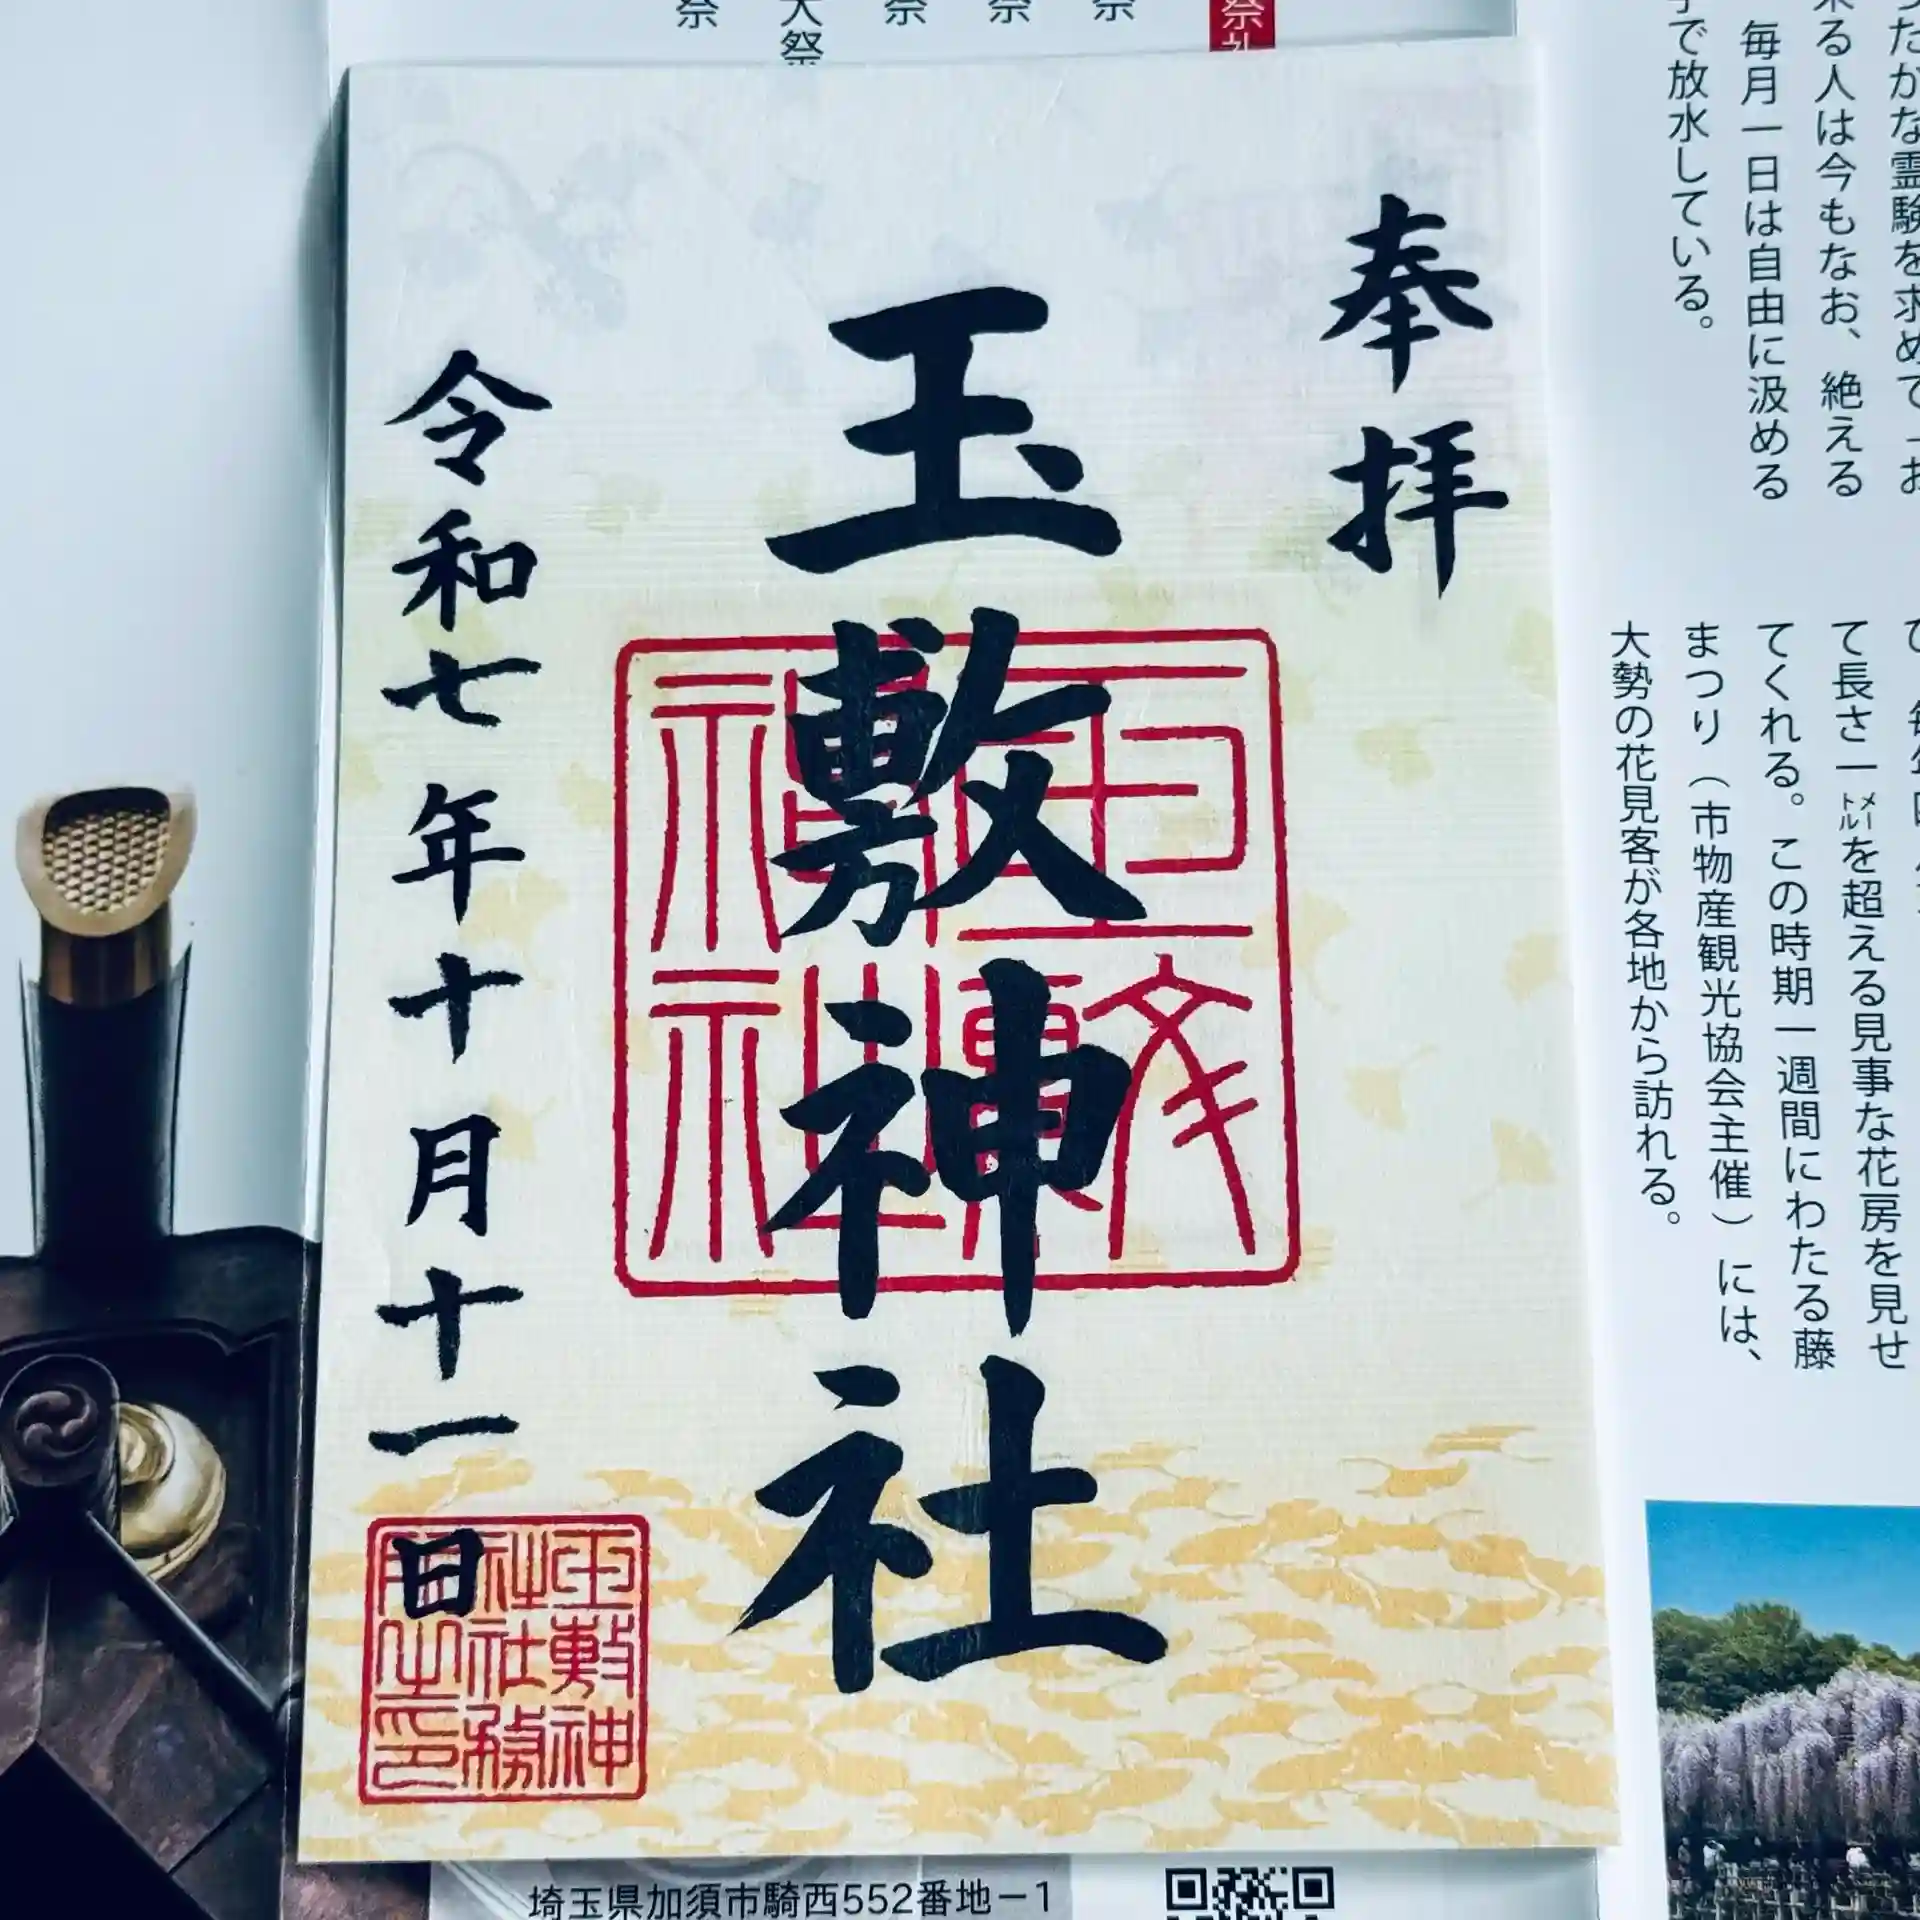 奉拝
玉敷神社
令和七年十月十一日
玉敷神社
玉敷神
社社務
祭
祭
祭
祭
大祭
祭
たかな霊験を求めて「お
来る人は今もなお、絶える
毎月一日は自由に汲める
で放水している。
て長さ一メートルを超える見事な花房を見せ
てくれる。この時期一週間にわたる藤
まつり（市物産観光協会主催）には、
大勢の花見客が各地から訪れる。
埼玉県加須市騎西552番地－1